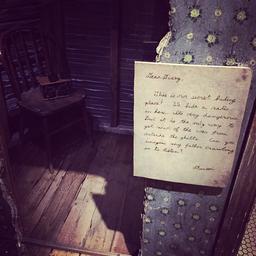 Dear Diary,
This is our secret hiding
place! It's hide a radio
in here. It's very dangerous
but it is the only way to
get news of the war from
outside the ghetto. Can you
imagine my father crawling
in to listen?